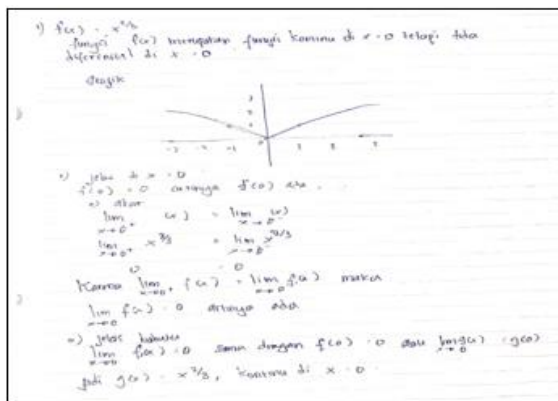 f(x) = x^2/3
fungsi f(x) merupakan fungsi kontinu di x = 0 tetapi tidak
diferensial di x = 0
Grafik
jelas di x = 0
f(0) = 0 artinya f(0) ada
akan
lim x→0+ (x) = lim x→0- (x)
lim x→0+ x^2/3 = lim x→0- x^2/3
0 0
Karena lim x→0+ f(x) = lim x→0- f(x) maka
lim x→0 f(x) = 0 artinya ada
jelas bahwa
lim x→0 f(x) = 0 sama dengan f(0) = 0 atau lim x→0 g(x) = g(0)
jadi g(x) = x^2/3, kontinu di x = 0.